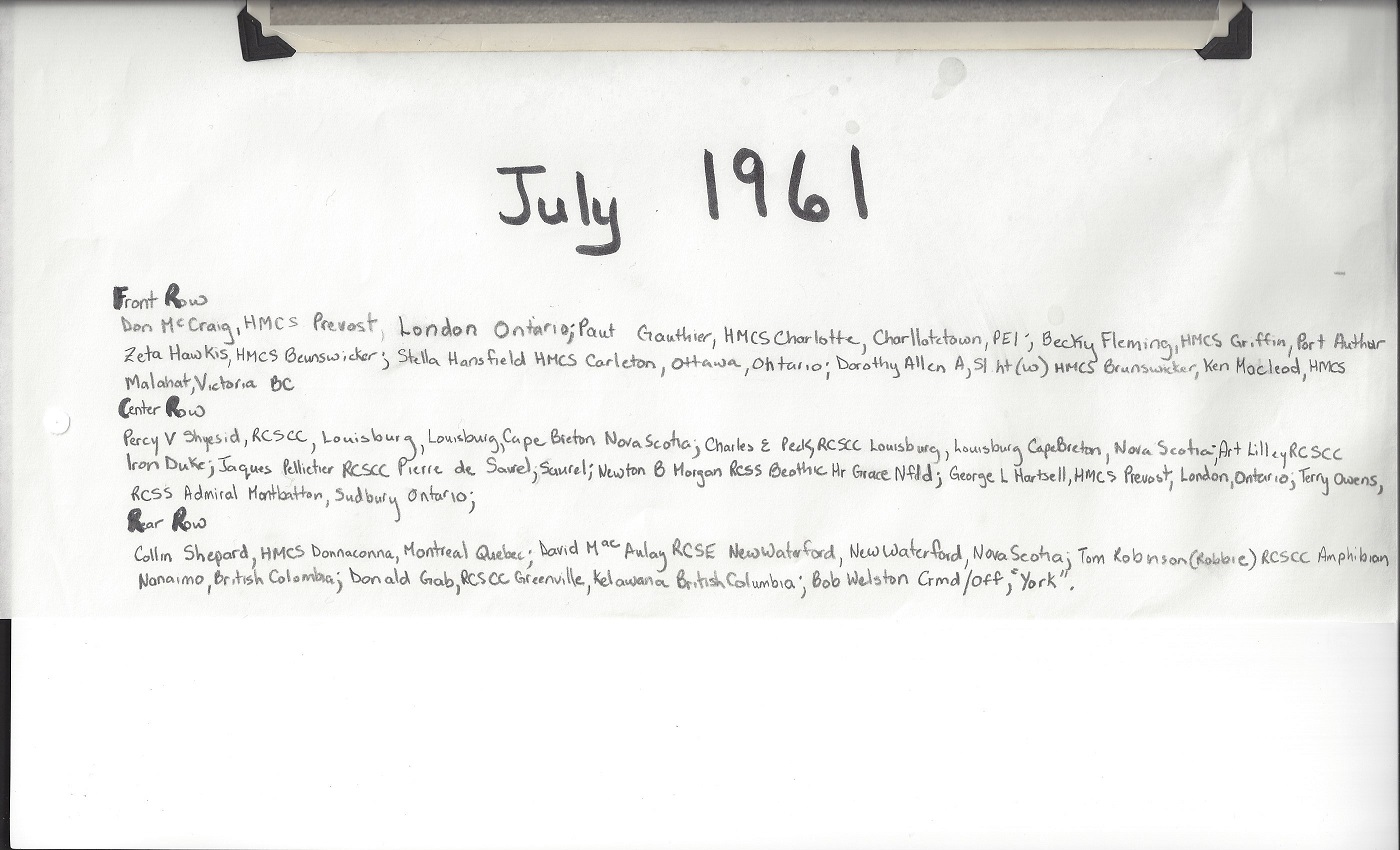 July 1961
Front Row
Don McCraig, HMCS Prevost, London Ontario; Paut Gauthier, HMCS Charlotte, Charllotetown, PEI; Becky Fleming, HMCS Griffin, Port Author
Zeta Hawkis, HMCS Beunswicker; Stella Hansfield HMCS Carleton, Ottawa, Ohtario; Dorothy Allen A, Sl. ht (w) HMCS Brunswicker, Ken Macleod, HMCS
Malahat, Victoria BC
Center Row
Percy V Shyesid, RCSCC, Louisburg, Louisburg, Cape Breton Nova Scotia; Charles E Peck, RCSCC Louisburg, Louisburg CapeBreton, Nova Scotia; Art Lilley RCSCC
Iron Duke; Jaques Pellictier RCSCC Pierre de Saurel; Saurel; Newton B Morgan RCSS Beothic Hr Grace Nfld; George L Hartsell, HMCS Prevost, London, Ontario; Terry Owens,
RCSS Admiral Montbatton, Sudbury Ontario;
Rear Row
Collin Shepard, HMCS Donnaconna, Montreal Quebec; David MacAulay RCSE New Waterford, New Waterford, Nova Scotia; Tom Robinson (Robbie) RCSCC Amphibian
Nanaimo, British Colombia; Donald Gab, RCSCC Greenville, Kelawana British Columbia; Bob Welston Crmd/Off, "York".